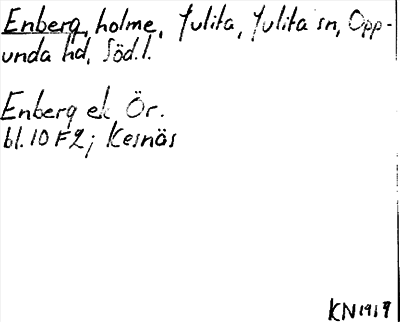 Enberg, holme, Julita, Julita sn, Opp-
unda hd, Söd.l.
Enberg ek Ör.
bl. 10 F2; Kesnäs
KN 1919